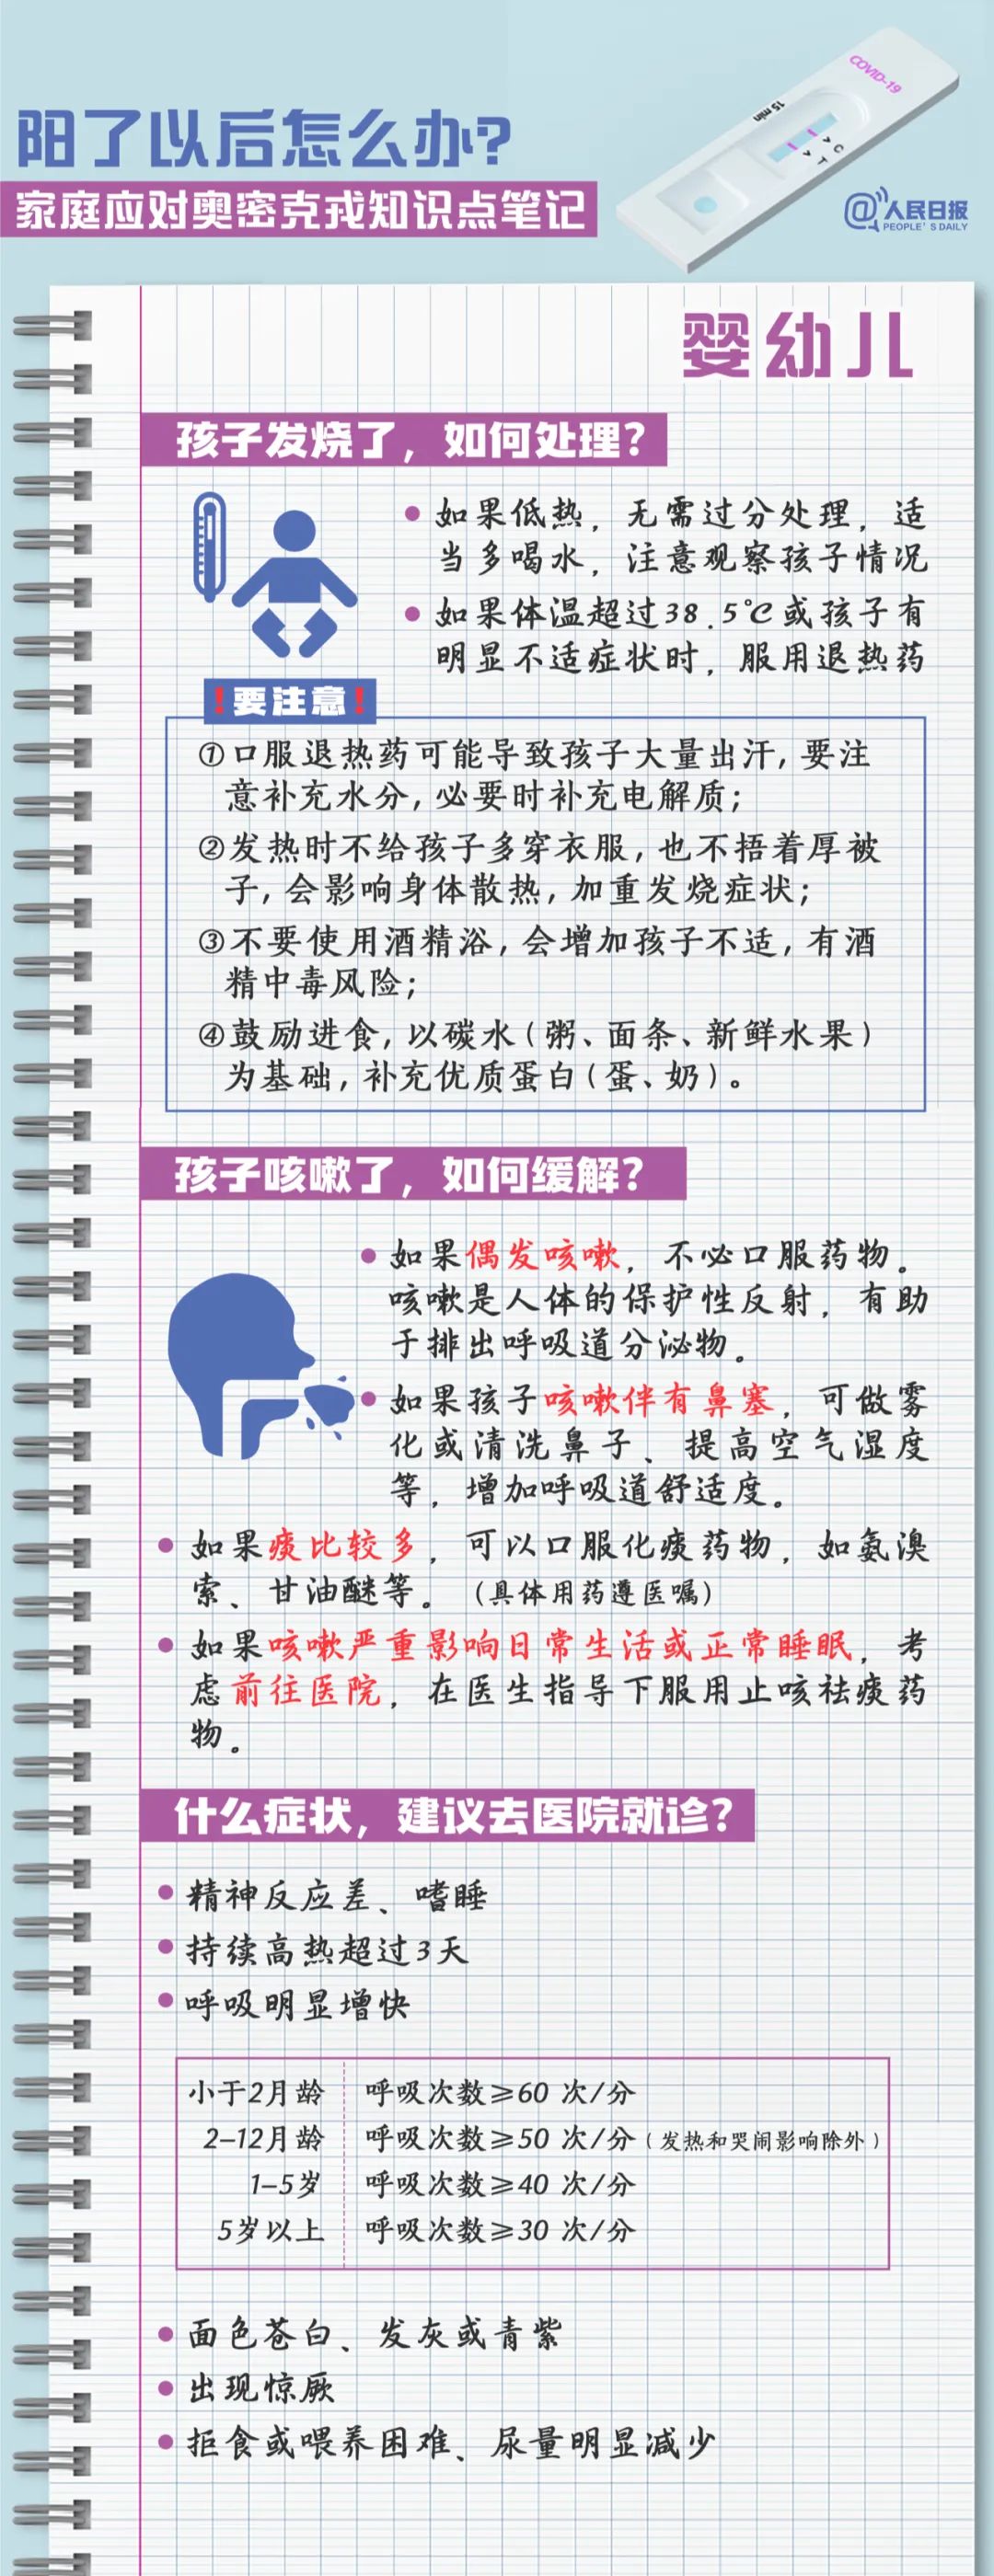 COVID-19
15 min
C
T
阳了以后怎么办?
家庭应对奥密克戎知识点笔记
@人民日报
PEOPLE'S DAILY
婴幼儿
孩子发烧了，如何处理?
如果低热，无需过分处理，适
当多喝水，注意观察孩子情况
如果体温超过38.5℃或孩子有
明显不适症状时，服用退热药
!要注意!
①口服退热药可能导致孩子大量出汗,要注
意补充水分,必要时补充电解质;
②发热时不给孩子多穿衣服,也不捂着厚被
子,会影响身体散热,加重发烧症状;
③不要使用酒精浴,会增加孩子不适,有酒
精中毒风险;
④鼓励进食,以碳水(粥、面条、新鲜水果)
为基础,补充优质蛋白(蛋、奶)。
孩子咳嗽了，如何缓解?
如果偶发咳嗽，不必口服药物。
咳嗽是人体的保护性反射，有助
于排出呼吸道分泌物。
如果孩子咳嗽伴有鼻塞，可做雾
化或清洗鼻子、提高空气湿度
等，增加呼吸道舒适度。
如果痰比较多，可以口服化痰药物，如氨溴
索、甘油醚等。(具体用药遵医嘱)
如果咳嗽严重影响日常生活或正常睡眠，考
虑前往医院，在医生指导下服用止咳祛痰药
物。
什么症状，建议去医院就诊?
精神反应差、嗜睡
持续高热超过3天
呼吸明显增快
小于2月龄 呼吸次数≥60 次/分
2-12月龄 呼吸次数≥50 次/分(发热和哭闹影响除外)
1-5岁 呼吸次数≥40 次/分
5岁以上 呼吸次数≥30 次/分
面色苍白、发灰或青紫
出现惊厥
拒食或喂养困难、尿量明显减少